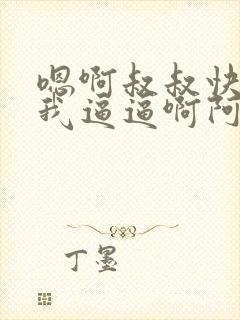 嗯啊叔叔快
我逼逼啊阿
丁墨